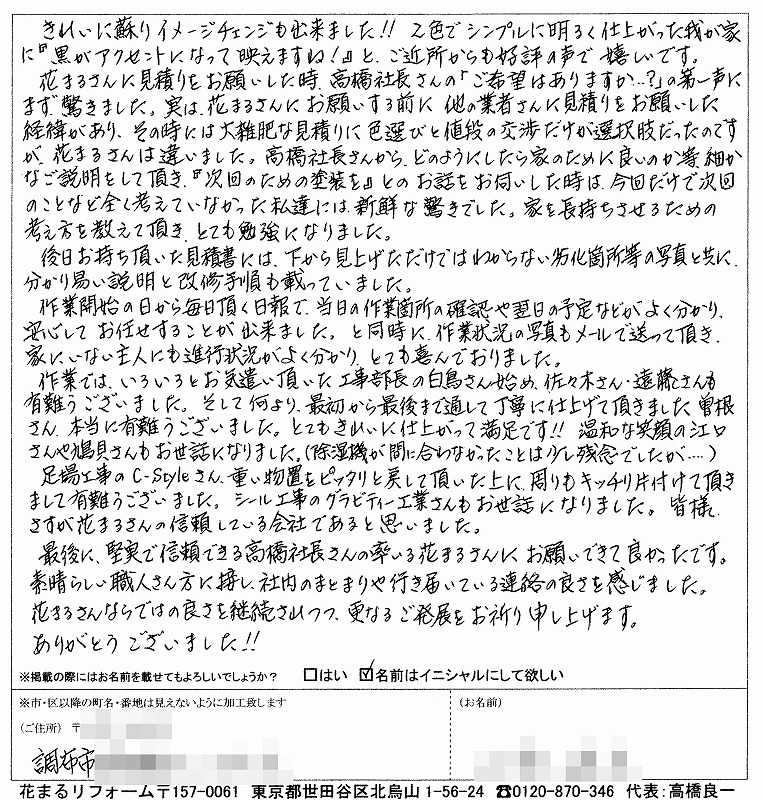 きれいに蘇りイメージチェンジも出来ました!! 2色でシンプルに明るく仕上がった我が家
に『黒がアクセントになって映えますね!』と、ご近所からも好評の声で嬉しいです。
花まるさんに見積りをお願いした時、高橋社長さんの「ご希望はありますか…?」の第一声に
まず驚きました。実は、花まるさんにお願いする前に他の業者さんに見積りをお願いした
経緯があり、その時には大雑肥な見積りに色選びと値段の交渉だけが選択肢だったのです
が、花まるさんは違いました。高橋社長さんから、どのようにしたら家のために良いのか等細か
なご説明をして頂き、『次回のための塗装を』とのお話をお伺いした時は、今回だけで次回
のことなど全く考えていなかった私達には、新鮮な驚きでした。家を長持ちさせるための
考え方を教えて頂き、とても勉強になりました。
後日お持ち頂いた見積書には、下から見上げただけではわからない劣化箇所等の写真と共に、
分かり易い説明と改修手順も載っていました。
作業開始の日から毎日頂く日報で、当日の作業箇所の確認や翌日の予定などがよく分かり、
安心してお任せすることが出来ました。と同時に、作業状況の写真もメールで送って頂き、
家にいない主人にも進行状況がよく分かり、とても喜んでおりました。
作業では、いろいろとお気遣い頂いた工事部長の白鳥さん始め、佐々木さん・遠藤さんも
有難うございました。そして何より、最初から最後まで通して丁寧に仕上げて頂きました曽根
さん、本当に有難うございました。とてもきれいに仕上がって満足です!! 温和な笑顔の江口
さんや鴻貝さんもお世話になりました。(除湿機が間に合わなかったことは少し残念でしたが....)
足場工事のC-Styleさん、重い物置をピッタリと戻して頂いた上に、周りもキッチリ片付けて頂き
まして有難うございました。シール工事のグラビティー工業さんもお世話になりました。皆様、
さすが花まるさんの信頼している会社であると思いました。
最後に、堅実で信頼できる高橋社長さんの率いる花まるさんにお願いできて良かったです。
素晴らしい職人さん方に接し、社内のまとまりや行き届いている連絡の良さを感じました。
花まるさんならではの良さを継続されつつ、更なるご発展をお祈り申し上げます。
ありがとうございました!!
※掲載の際にはお名前を載せてもよろしいでしょうか? □はい ☑名前はイニシャルにして欲しい
※市・区以降の町名・番地は見えないように加工致します
(お名前)
(ご住所) 〒
調布市
花まるリフォーム〒157-0061 東京都世田谷区北烏山1-56-24 ☎0120-870-346 代表:高橋良一